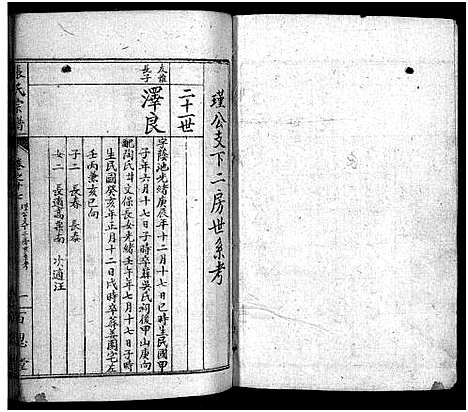 瑾公支下二房世系考
二十一世
友龍長子
澤良
字蔭池光緒庚辰年十二月十七日巳時生民國甲
子年六月十七日子時卒蔴吳氏祠後甲山庚向
配陶氏甘文保長女光緒壬午年七月十七日子時
生民國癸亥年正月十二日戌時卒葬姜園宅左
壬丙兼亥巳向
子二 長春 長泰
女二 長適高 次適汪
張氏宗譜
百忍堂